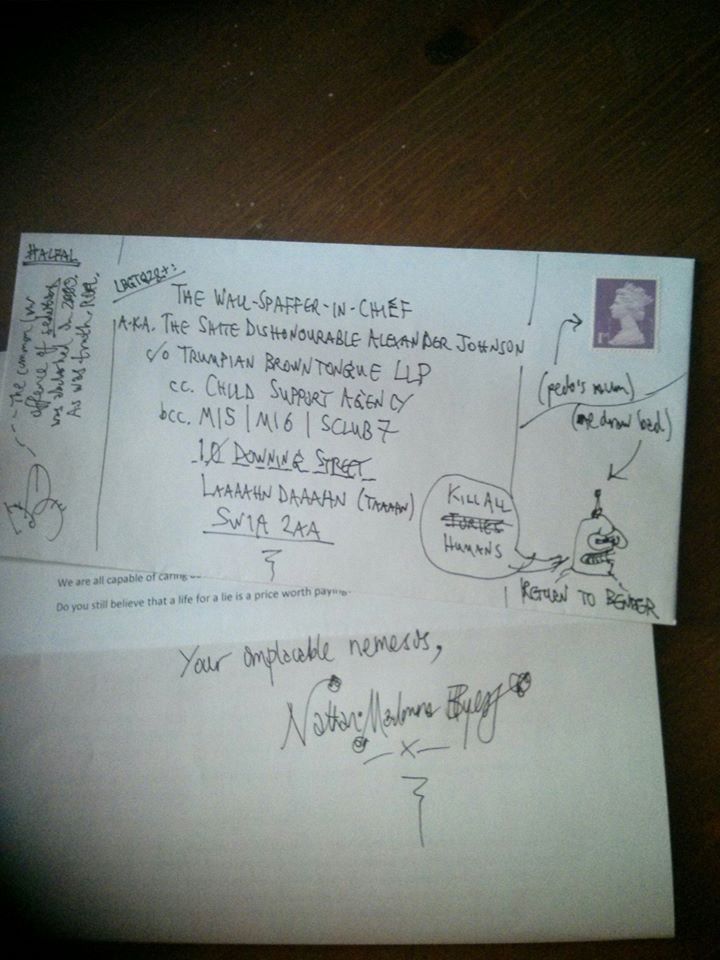 #HALFAL
The common law
offence of sedition
was abolished in
As was truth.
LBGTQ28+:
THE WALL-SPAFFER-IN-CHIEF
A.K.A. THE SHITE DISHONOURABLE ALEXANDER JOHNSON
c/o TRUMPIAN BROWNTONGUE LLP
cc. CHILD SUPPORT AGENCY
bcc. MI5 | MI6 | SCLUB 7
10 DOWNING STREET
LAAAAHN DAAAHN (TAAAAN)
SW1A 2AA
1st
(pedo's mum)
(me draw bad.)
KILL ALL
TORIES
HUMANS
RETURN TO BENDER
We are all capable of caring
Do you still believe that a life for a lie is a price worth paying
Your implacable nemesis,
X